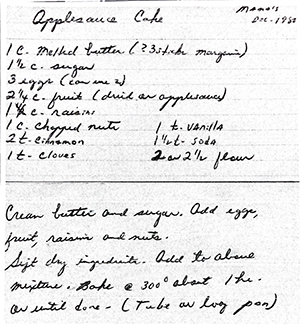 Applesauce Cake
Mama's
Dec. 1980
1 c. melted butter (? 3 sticks margerin)
1 1/2 c. sugar
3 eggs (can use 2)
2 1/4 c. fruit (dried or applesauce)
1 1/2 c. raisins
1 c. chopped nuts 1 t. vanilla
2 t. cinnamon 1 1/2 t. soda
1 t. cloves 2 or 2 1/2 flour
Cream butter and sugar. Add eggs,
fruit, raisins and nuts.
Sift dry ingredients. Add to above
mixture. Bake @ 300° about 1 hr.
or until done - (Tube or loaf pan)